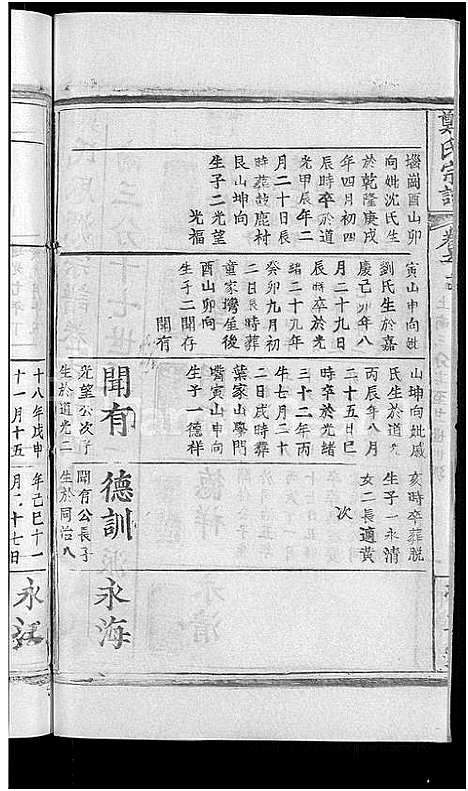 鄭氏宗譜
塥崗酉山卯
向妣沈氏生
於乾隆庚戌
年四月初四
辰時卒於道
光甲辰年二
月二十日辰
時葬鼓鹿村
艮山坤向
生子二光望
光福
寅山申向妣
劉氏生於嘉
慶己卯年八
月二十九日
辰時卒於光
緒二十九年
癸卯九月初
二日辰時葬
童家灣屋後
酉山卯向
生子二聞存
聞有
山坤向妣戚
氏生於道光
丙辰年八月
二十五日巳
時卒於光緒
三十二年丙
午七月二十
二日戌時葬
葉家山學門
嘴寅山申向
生子一德祥
聞有
光望公次子
生於道光二
十八年戊申
十一月十五
亥時卒葬脫
生子一永清
女二長適黃
次
德訓
聞有公長子
生於同治八
年己巳十一
月八十七日
永海
永江